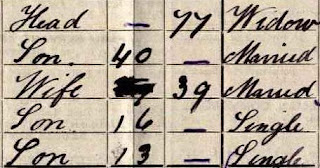 Head — 77 Widow
Son. 40 — Married
Wife 39 Married
Son. 16 — Single
Son 13 — Single